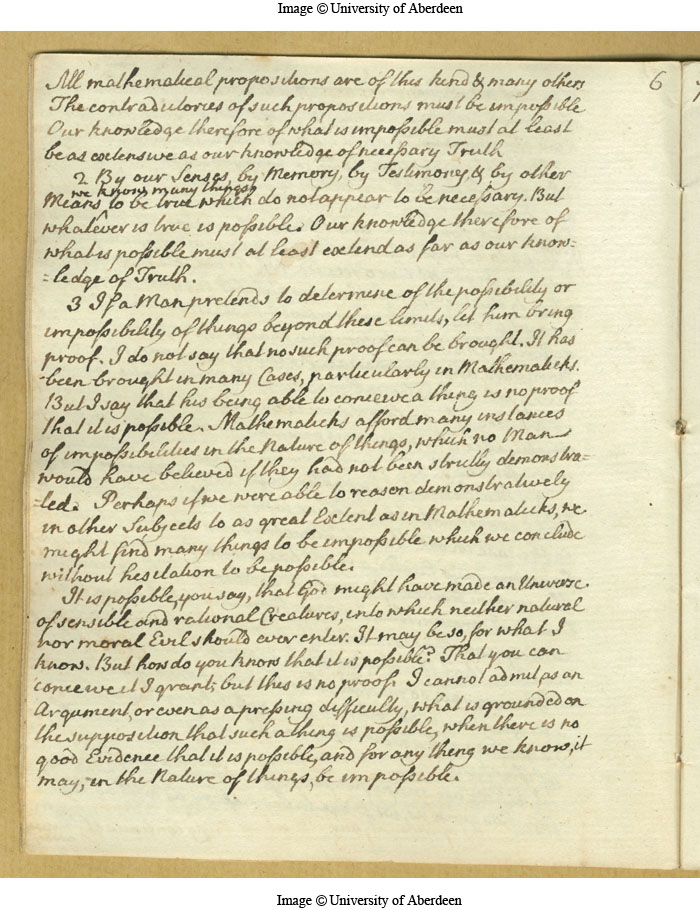 Image © University of Aberdeen
All mathematical propositions are of this kind & many others
6
The contradictories of such propositions must be impossible
Our knowledge therefore of what is impossible must at least
be as extensive as our knowledge of necessary Truth
2 By our Senses, by Memory, by Testimony & by other
we know many things
Means to be true which do not appear to be necessary. But
whatever is true is possible. Our knowledge therefore of
what is possible must at least extend as far as our know-
-ledge of Truth.
3 If a Man pretends to determine of the possibility or
impossibility of things beyond these limits, let him bring
proof. I do not say that no such proof can be brought. It has
been brought in many Cases, particularly in Mathematicks.
But I say that his being able to conceive a thing is no proof
that it is possible. Mathematicks afford many instances
of impossibilities in the Nature of things, which no Man
would have believed if they had not been strictly demonstra-
-ted. Perhaps if we were able to reason demonstratively
in other Subjects to as great Extent as in Mathematicks, we
might find many things to be impossible which we conclude
without hesitation to be possible.
It is possible, you say, that God might have made an Universe
of sensible and rational Creatures, into which neither natural
nor moral Evil should ever enter. It may be so, for what I
know. But how do you know that it is possible? That you can
conceive it I grant; but this is no proof. I cannot admit as an
Argument, or even as a pressing difficulty, what is grounded on
the supposition that such a thing is possible, when there is no
good Evidence that it is possible, and for any thing we know, it
may, in the Nature of things, be impossible.
Image © University of Aberdeen